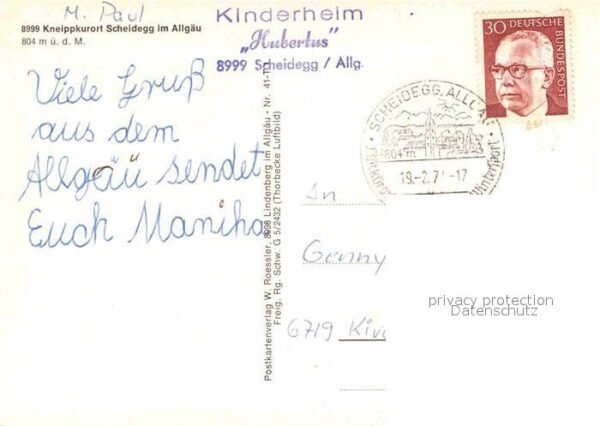 M. Paul
8999 Kneippkurort Scheidegg im Allgäu
804 m ü. d. M.
Kinderheim
„Hubertus"
8999 Scheidegg / Allg.
30 DEUTSCHE BUNDESPOST
SCHEIDEGG, ALLGÄU
804 m
Wintersport
19.-2.7 -17
Viele Gruß
aus dem
Allgäu sendet
Euch Manika
Postkartenverlag W. Roessler, 8998 Lindenberg im Allgäu - Nr. 41-1
Freig. Rg. Schw. G 5/2432 (Thorbecke Luftbild)
In
Genny
6719
privacy protection
Datenschutz